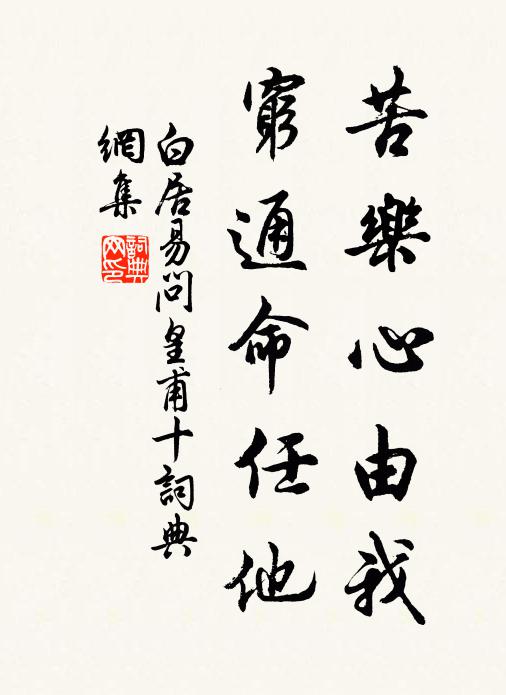 苦樂心由我
窮通命任他
白居易問皇甫十詞典
網集
詞典网印